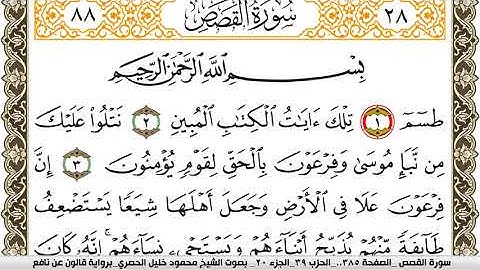 ٨٨ سُورَةُ القَصَصِ ٢٨
بِسْمِ اللَّهِ الرَّحْمَٰنِ الرَّحِيمِ
طسٓمٓ ١ تِلْكَ ءَايَٰتُ الْكِتَٰبِ الْمُبِينِ ٢ نَتْلُوا۟ عَلَيْكَ
مِن نَّبَإِ مُوسَىٰ وَفِرْعَوْنَ بِالْحَقِّ لِقَوْمٍ يُؤْمِنُونَ ٣ إِنَّ
فِرْعَوْنَ عَلَا فِي الْأَرْضِ وَجَعَلَ أَهْلَهَا شِيَعًا يَسْتَضْعِفُ
طَآئِفَةً مِّنْهُمْ يُذَبِّحُ أَبْنَآءَهُمْ وَيَسْتَحْيِۦ نِسَآءَهُمْ إِنَّهُۥ كَانَ
سورة القصص_الصفحة ٣٨٥... الحزب ٣٩_الجزء ٢٠_ بصوت الشيخ محمود خليل الحصري_برواية قالون عن نافع